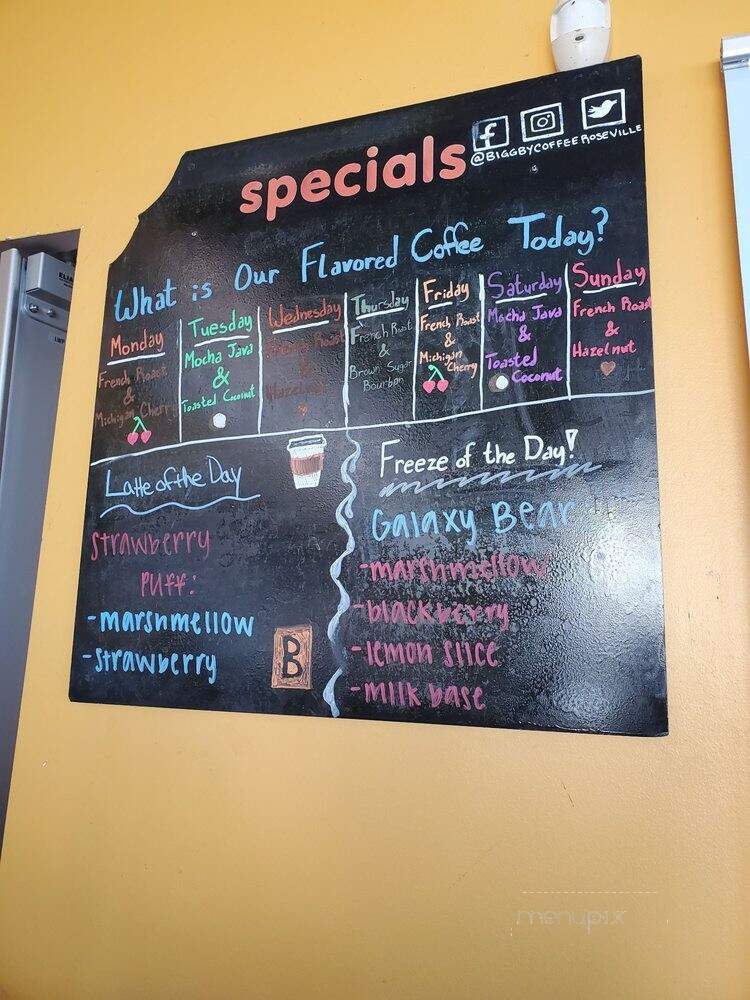 specials
@BIGGBYCOFFEEROSEVILLE
What is Our Flavored Coffee Today?
Monday
French Roast
&
Michigan Cherry
Tuesday
Mocha Java
&
Toasted Coconut
Wednesday
French Roast
&
Hazelnut
Thursday
French Roast
&
Brown Sugar
Bourbon
Friday
French Roast
&
Michigan
Cherry
Saturday
Mocha Java
&
Toasted
Coconut
Sunday
French Roast
&
Hazelnut
Latte of the Day
Strawberry
Puff:
-marshmellow
-strawberry
B
Freeze of the Day!
Galaxy Bear
-marshmellow
-blackberry
-lemon slice
-milk base
menupix